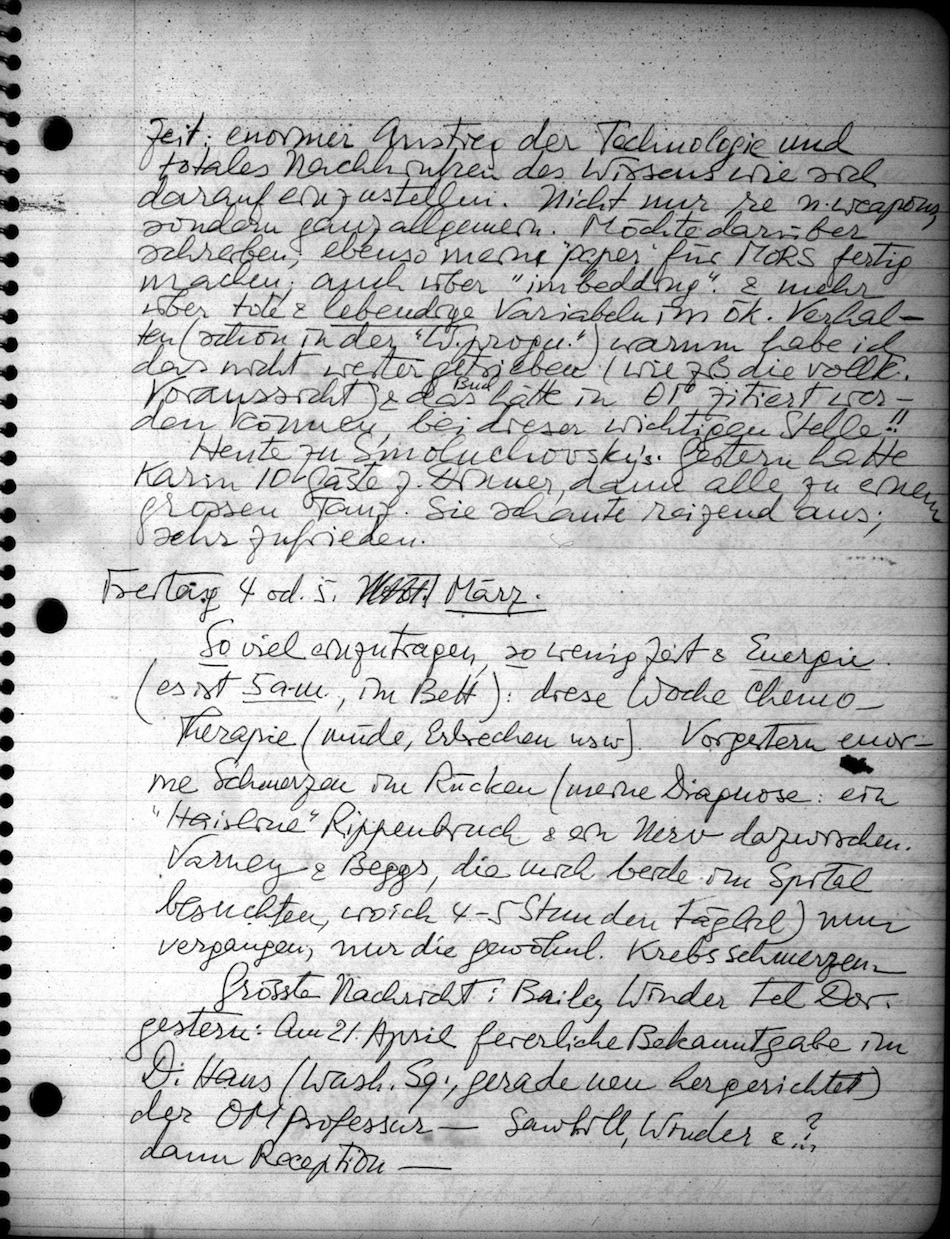 Zeit: enormer Anstieg der Technologie und
totales Nachhinken des Wissens wie sich
darauf einzustellen. Nicht nur re n. weapons,
sondern ganz allgemein. Möchte darüber
schreiben, ebenso meine "paper" für MORS fertig
machen; auch über "imbedding". & mehr
über tote & lebendige Variabeln im ök. Verhal-
ten (schon in der "W. progn.") warum habe ich
das nicht weiter getrieben (wie zB die vollk.
Voraussicht) & das Bud hätte in θΓ zitiert wer-
den können, bei dieser wichtigen Stelle!!
Heute zu Smoluchovskys. Gestern hatte
Karin 10 Gäste z. Dinner, dann alle zu einem
grossen Tanz. Sie schaute reizend aus;
sehr zufrieden.
Freitag 4 od. 5. März.
So viel einzutragen, so wenig Zeit & Energie.
(es ist 5 a.m., im Bett): diese Woche Chemo-
Therapie (müde, Erbrechen usw). Vorgestern enor-
me Schmerzen im Rücken (meine Diagnose: ein
"Hairline" Rippenbruch & ein Nerv dazwischen.
Varney & Beggs, die mich beide im Spital
besuchten, wo ich 4-5 Stunden täglich) nun
vergangen, nur die gewöhnl. Krebsschmerzen
Grösste Nachricht: Bailey Winder tel Vor-
gestern: Am 21. April feierliche Bekanntgabe im
D. Haus (Wash. Sq., gerade neu hergerichtet)
der OM Professur — Sawhill, Winder & ?
dann Reception —